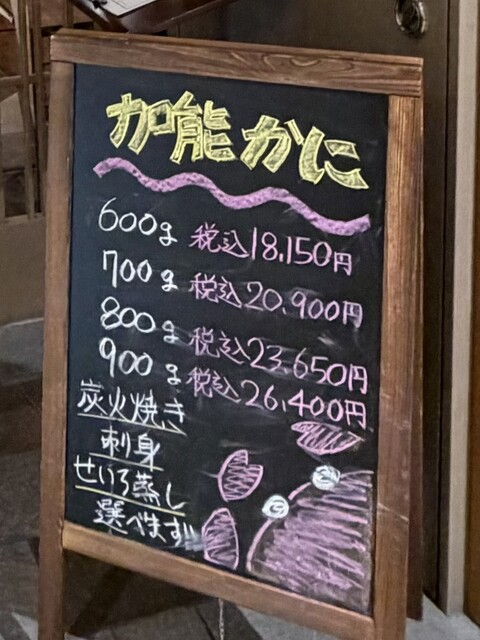 加能かに
600g 税込18.150円
700g 税込20.900円
800g 税込23.650円
900g 税込26.400円
炭火焼き
刺身
せいろ蒸し
選べます!!